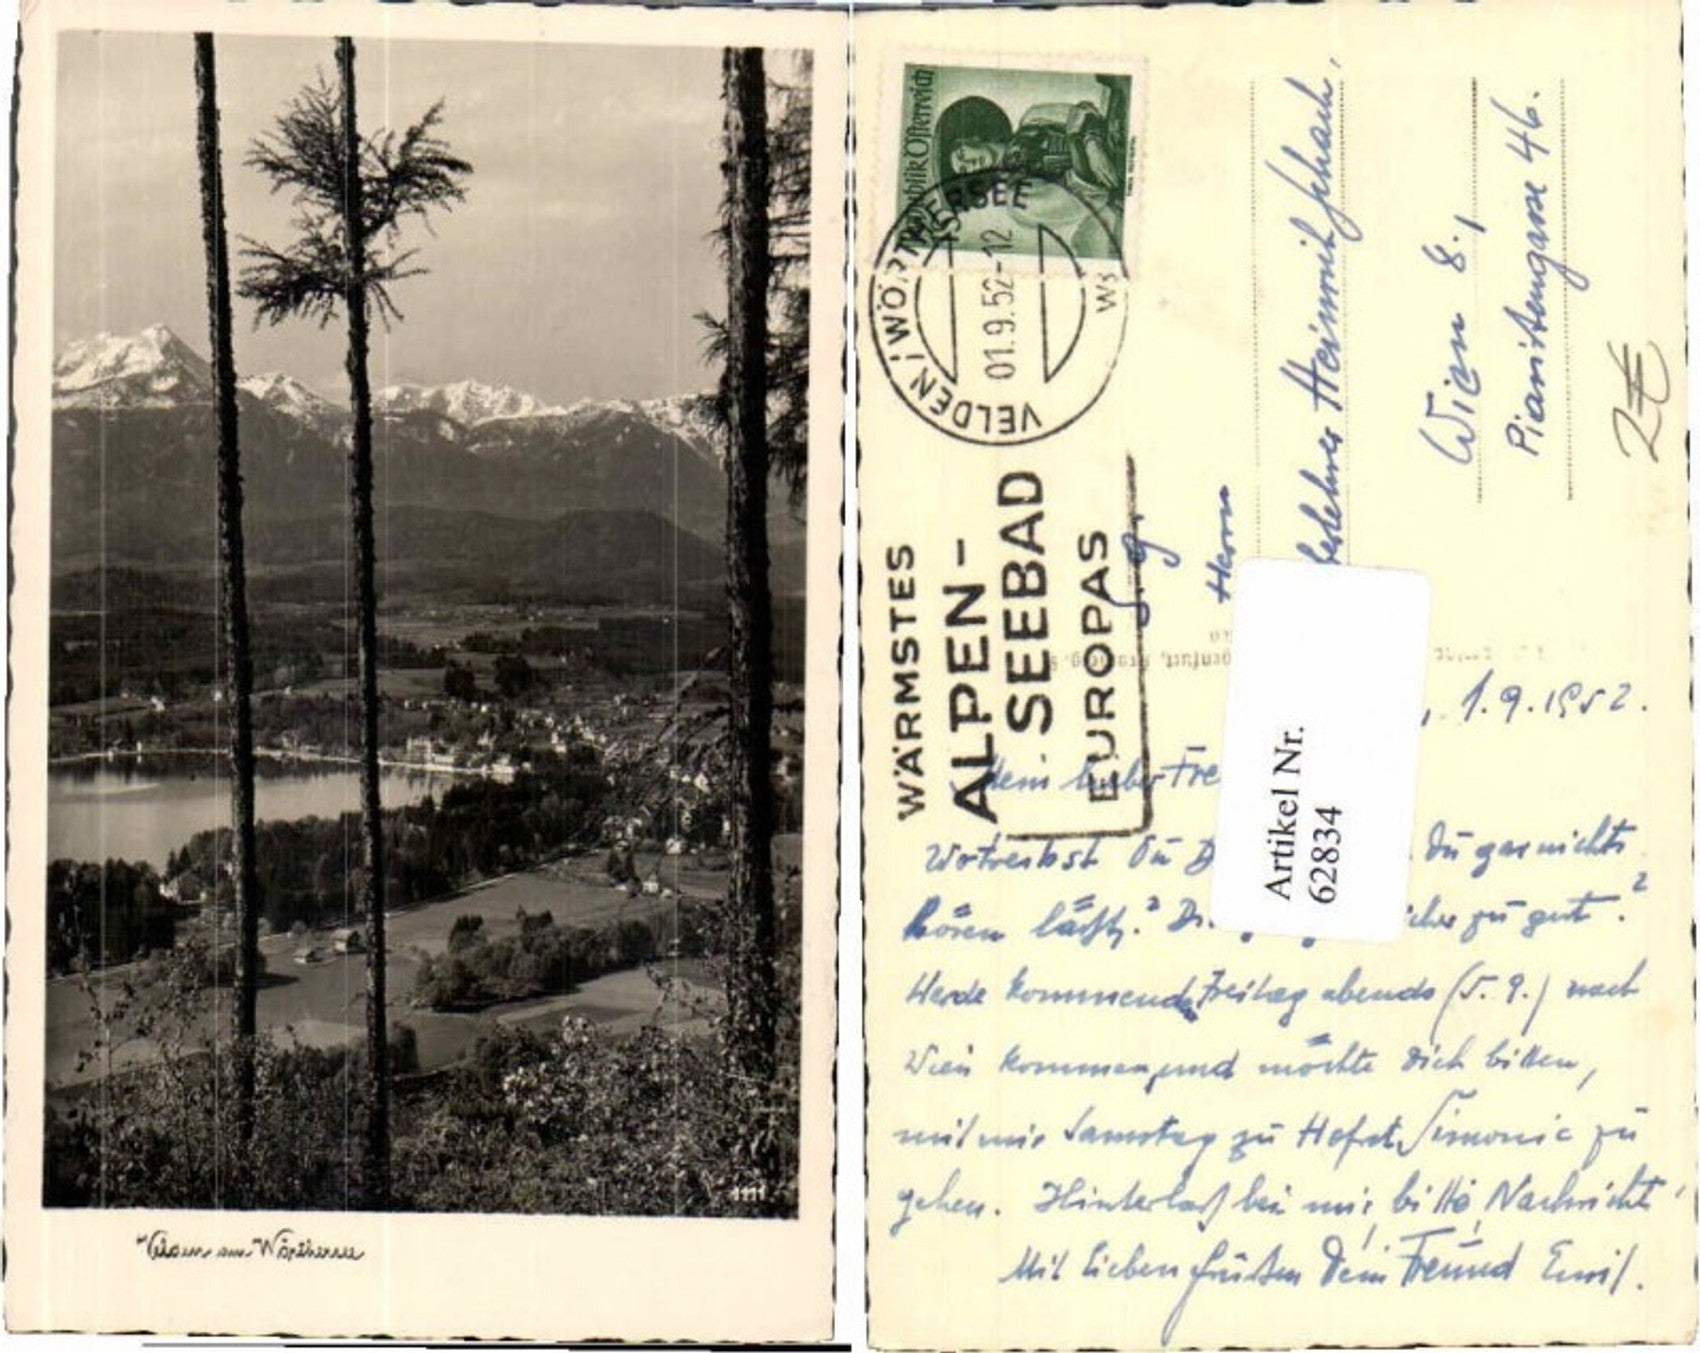 Velden am Wörthersee
1111
Republik Österreich
VELDEN (WÖRTHERSEE
01.9.52-12
WÄRMSTES
ALPEN-
SEEBAD
EUROPAS
Herrn
Heinrich
Wien 8.,
Piaristengasse 46.
2€
Artikel Nr.
62834
1.9.1952.
Mein lieber Fre
Wo treibst Du D Du gar nichts
hören läßt? zu gut.?
Werde kommenden Freitag abends (5.9.) nach
Wien kommen und möchte Dich bitten,
mit mir Samstag zu Hofrat Simonic zu
gehen. Hinterlaß bei mir, bitte, Nachricht!
Mit lieben Grüßen Dein Freund Emil.